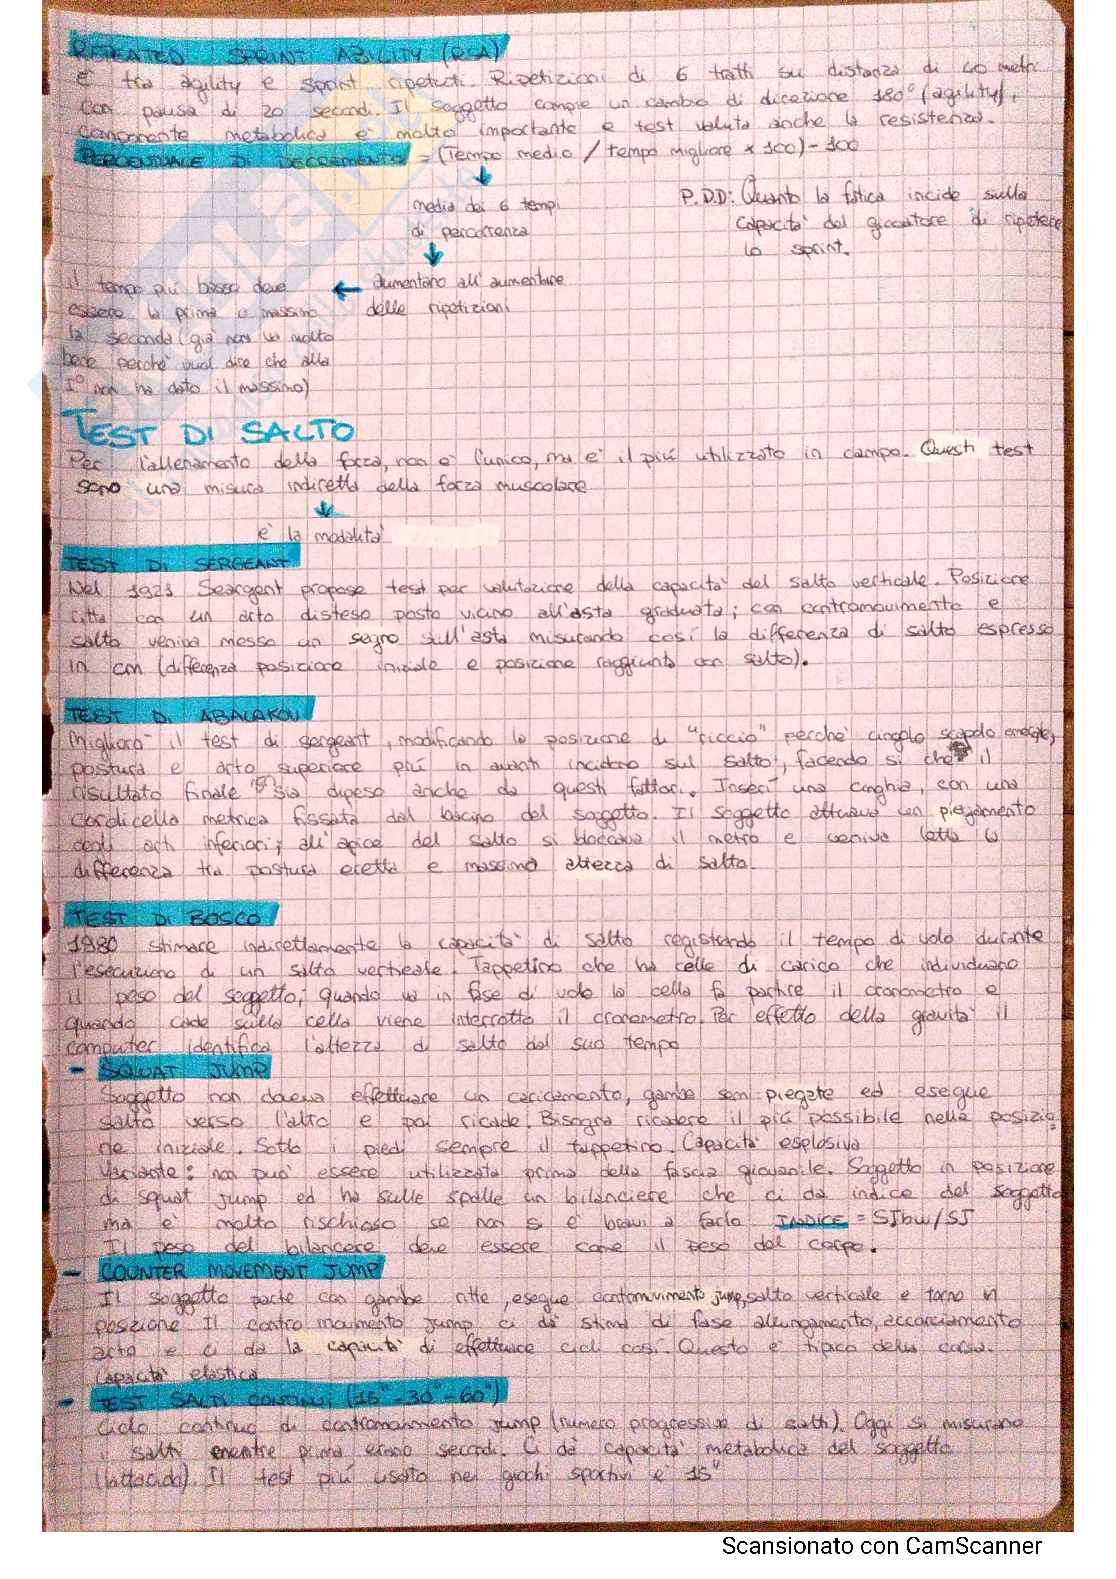 REPEATED SPRINT ABILITY (RSA)
È tra agility e sprint ripetuti. Ripetizioni di 6 tratti su distanza di 40 metri
con pausa di 20 secondi. Il soggetto compie un cambio di direzione 180° (agility),
componente metabolica è molto importante e test valuta anche la resistenza.
PERCENTUALE DI DECREMENTO = (Tempo medio / tempo migliore x 100) - 100
media dei 6 tempi
di percorrenza
P.D.D: Quanto la fatica incide sulla
capacità del giocatore di ripetere
lo sprint.
aumentano all'aumentare
delle ripetizioni
il tempo più basso deve
essere la prima o massimo
la seconda (già non va molto
bene perché vuol dire che alla
I° non ha dato il massimo)
TEST DI SALTO
Per l'allenamento della forza, non è l'unico, ma è il più utilizzato in campo. Questi test
sono una misura indiretta della forza muscolare
è la modalità
TEST DI SERGEANT
Nel 1921 Seargent propose test per valutazione della capacità del salto verticale. Posizione
ritta con un arto disteso posto vicino all'asta graduata; con contromovimento e
salto veniva messo un segno sull'asta misurando così la differenza di salto espresso
in cm (differenza posizione iniziale e posizione raggiunta con salto).
TEST DI ABALAKOV
Migliorò il test di sergeant, modificando la posizione di "riccio" perchè cingolo scapolo omerale,
postura e arto superiore più in avanti incidono sul salto, facendo si che il
risultato finale sia dipeso anche da questi fattori. Inserì una cinghia, con una
cordicella metrica fissata dal bacino del soggetto. Il soggetto attuava un piegamento
degli arti inferiori; all'apice del salto si bloccava il metro e veniva letta la
differenza tra postura eretta e massima altezza di salto.
TEST DI BOSCO
1980 stimare indirettamente la capacità di salto registrando il tempo di volo durante
l'esecuzione di un salto verticale. Tappetino che ha celle di carico che individuano
il peso del soggetto; quando va in fase di volo la cella fa partire il cronometro e
quando cade sulla cella viene interrotto il cronometro. Per effetto della gravità il
computer identifica l'altezza di salto dal suo tempo
- SQUAT JUMP
Soggetto non doveva effettuare un caricamento, gambe semi piegate ed esegue
salto verso l'alto e poi ricade. Bisogna ricadere il più possibile nella posizio
ne iniziale. Sotto i piedi sempre il tappetino. Capacità esplosiva
Variante: non può essere utilizzata prima della fascia giovanile. Soggetto in posizione
di squat jump ed ha sulle spalle un bilanciere che ci da indice del soggetto
ma è molto rischioso se non si è bravi a farlo INDICE = SJbw/SJ
Il peso del bilancere deve essere come il peso del corpo.
- COUNTER MOVEMENT JUMP
Il soggetto parte con gambe ritte, esegue contromovimento jump, salto verticale e torno in
posizione Il contro movimento jump ci dà stima di fase allungamento, accorciamento
arto e ci da la capacità di effettuare cicli così. Questo è tipico della corsa.
Capacità elastica
- TEST SALTI CONTINUI (15"-30"-60")
Ciclo continuo di contromovimento jump (numero progressivo di salti). Oggi si misurano
i salti mentre prima erano secondi. Ci dà capacità metabolica del soggetto
(lattacida). Il test più usato nei giochi sportivi è 15"
Scansionato con CamScanner